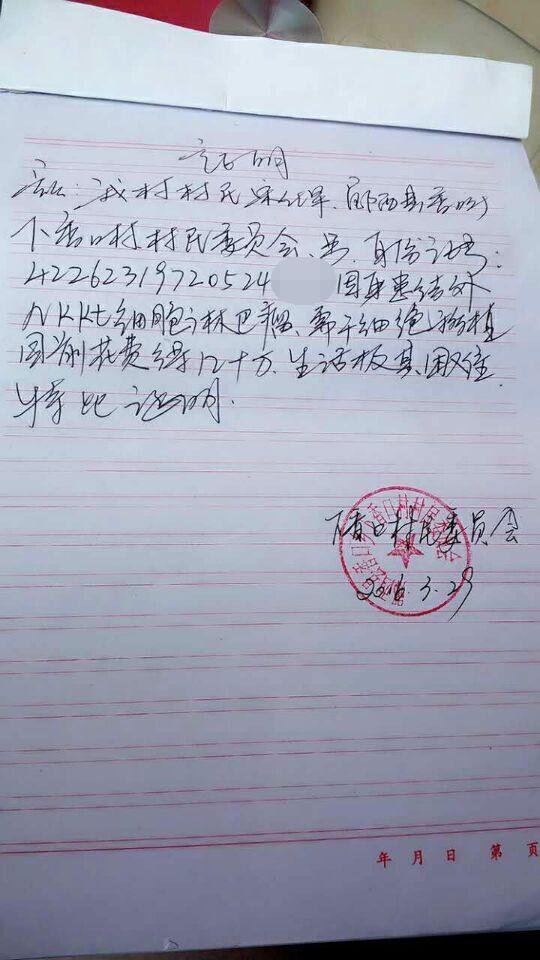 证明
兹: 我村村民 郧西县香口
下香口村村民委员会 身份证号:
42262319720524 因身患结外
NKKt细胞淋巴瘤、需干细胞移植
目前花费得几十万. 生活极其困难.
特此证明.
下香口村民委员会
2016.3.29
年 月 日 第 页